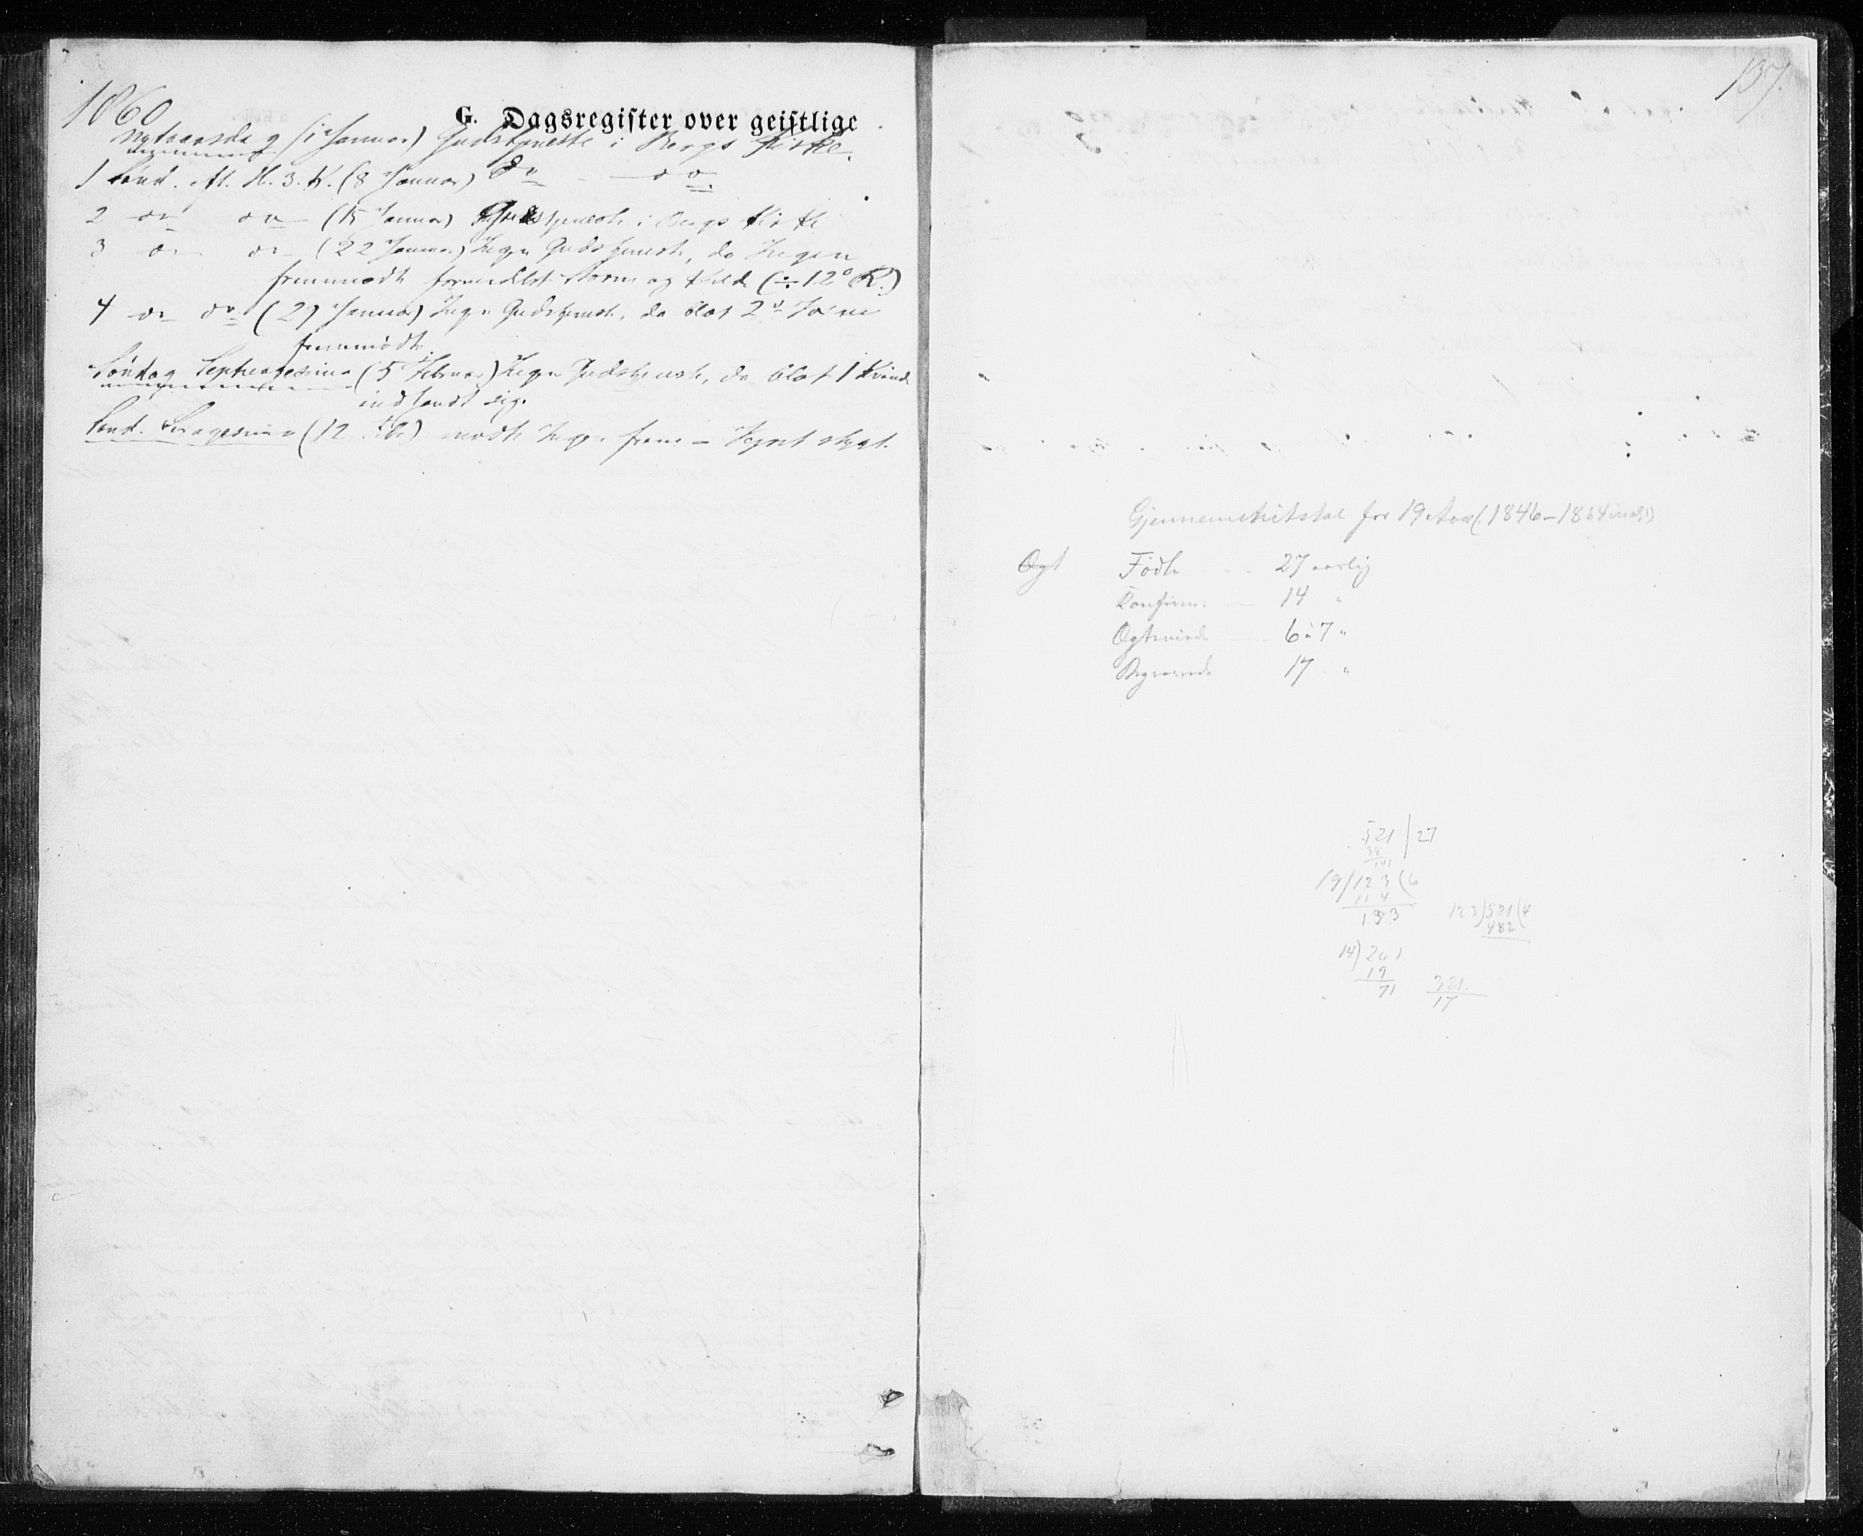 1860
G. Dagsregister over geistlige
Nytaarsdag (1 Januar) Gudstjeneste i Bergs Kirke.
1 Sønd. Af. H. 3. K. (8 Januar) do — do
2 do do (15 Januar) Gudstjeneste i Bergs Kirke
3 do do (22 Januar) Ingen Gudstjeneste, da Ingen
fremmødte formedelst Storm og Kuld (÷12° R.)
4 do do (29 Januar) Ingen Gudstjeneste, da blot 2de
fremmødte
Søndag Septuagesima (5 Februar) Ingen Gudstjeneste, da blot 1 Kvinde
indfandt sig.
Sønd. Sexagesima (12 Feb.) mødte Ingen frem – Veiret stygt.
137.
Gjennemsnitstal for 19 Aar (1846–1864 incl.)
Ogt Fødte 27 aarlig
Konfirm. 14 "
Ogteviede 6 à 7 "
Begravede 17 "
521 | 27
38
141
19/123(6
114
133
123)521(4
482
14)261
19
71
321
17